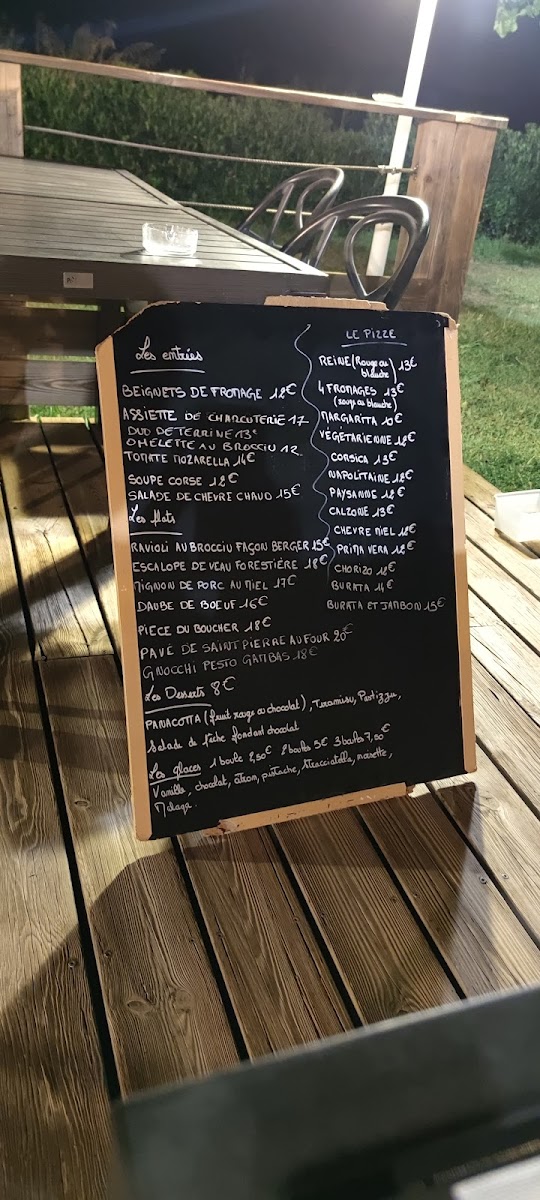 Les entrées
BEIGNETS DE FROMAGE 12€
ASSIETTE DE CHARCUTERIE 17
DUO DE TERRINE 13€
OMELETTE AU BROCCIU 12
TOMATE MOZARELLA 14€
SOUPE CORSE 12€
SALADE DE CHEVRE CHAUD 15€
Les plats
RAVIOLI AU BROCCIU FAÇON BERGER 15€
ESCALOPE DE VEAU FORESTIÈRE 18€
MIGNON DE PORC AU MIEL 17€
DAUBE DE BŒUF 16€
PIÈCE DU BOUCHER 18€
PAVE DE SAINT PIERRE AU FOUR 20€
GNOCCHI PESTO GAMBAS 18€
Les Desserts 8€
PANACOTTA (fruit rouge ou chocolat), Tiramisu, Pastizzu,
Salade de Pêche fondant chocolat
Les glaces 1 boule 2,50€ 2 boules 5€ 3 boules 7,50€
Vanille, chocolat, citron, pistache, stracciatella, noisette,
Malaga.
LE PIZZE
REINE (Rouge ou blanche) 13€
4 FROMAGES 13€
(rouge ou blanche)
MARGARITA 10€
VÉGÉTARIENNE 12€
CORSICA 13€
NAPOLITAINE 12€
PAYSANNE 12€
CALZONE 13€
CHEVRE MIEL 12€
PRIMA VERA 12€
CHORIZO 12€
BURATA 14€
BURATA ET JAMBON 15€